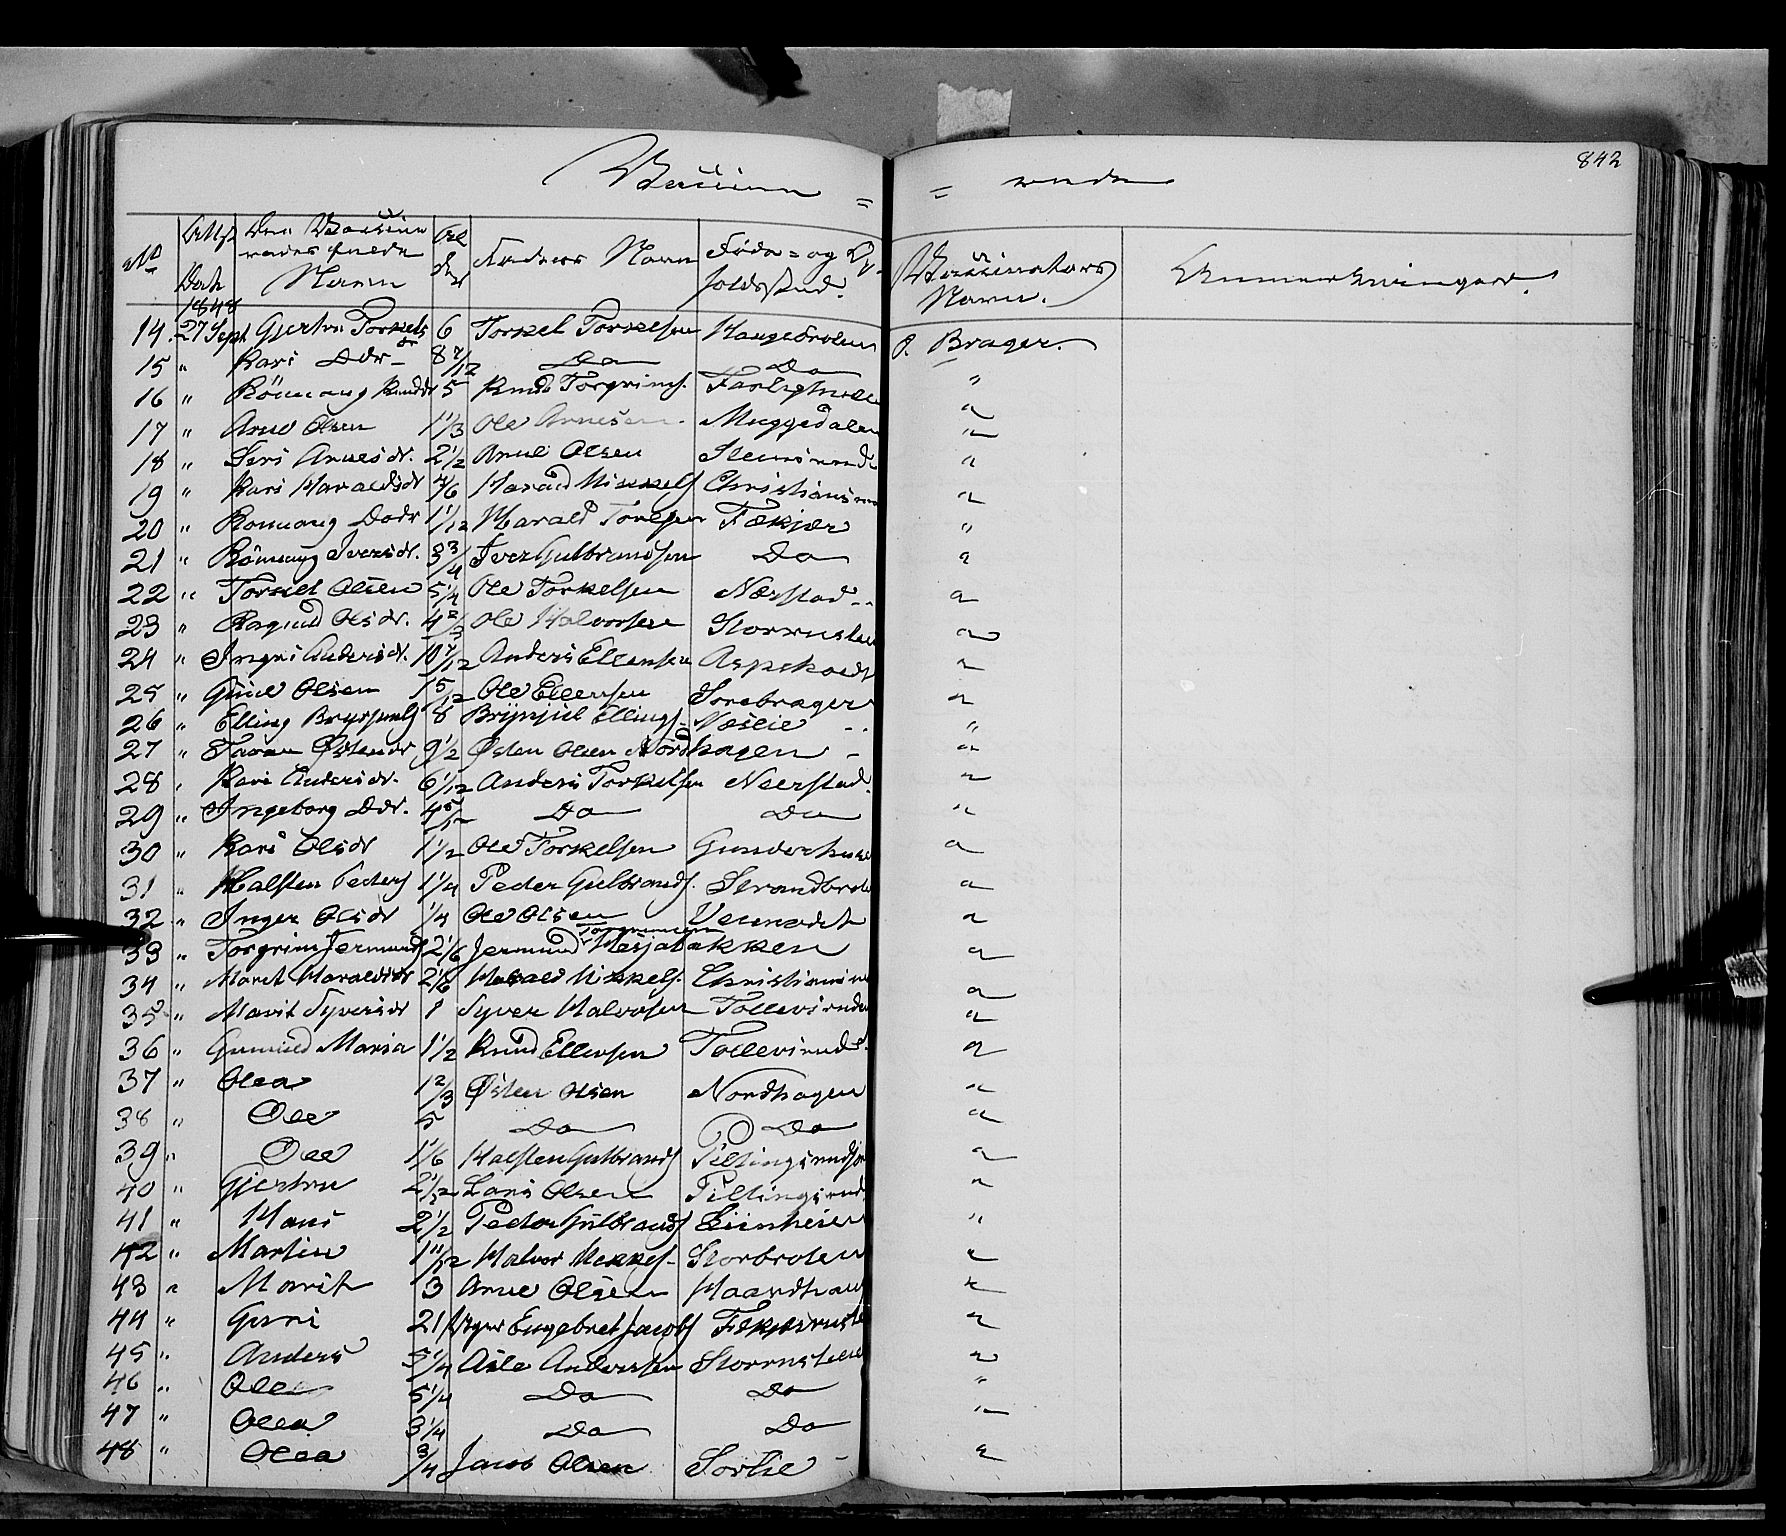 Vaccine = = rede
842
No Att. Dat. Den Vaccineredes fulde Navn Alder Faders Navn Føde- og Opholdssted. Vaccinators Navn. Anmærkninger.
1848
14. 27 Sept Gjertru Torkelsdr 6 Torkel Torkelsen Haugebroten P. Brager.
15 " Kari Ddr 8 7/12 Do Do "
16 " Rönnaug Knudsdr 5 Knud Torgrims. "
17 " Arne Olsen 1 1/3 Ole Arnesen. Muggedalen "
18 " Siri Arnesdr. 2 1/2 Arne Olsen "
19 " Kari Haraldsdr Harald Mikkels "
20 " Ronnaug Dodr 1 1/12 Harald Torelsen Fækjær "
21 " Rönnaug Iversdr. 3 3/4 Iver Gulbrandsen Do "
22 " Torkel Olsen 5 1/4 Ole Torkelsen Nærstad "
23 " Ragnild Olsdr. 4 2/3 Ole Halvorsen Storrusten "
24 " Ingri Andersdr. 10 7/12 Anders Ellensen Aspeholdt "
25 " Guul Olsen 1 5/12 Ole Ellensen Sorebrager "
26 " Elling Brynjuls 8 Brynjul Ellings. Næslie "
27 " Østensdr 9 1/2 Østen Olsen Nordhagen "
28 " Kari Andersdr. 6 1/12 Anders Torkelsen Neerstad. "
29 " Ingeborg Ddr. 4 5/12 Do Do "
30 " Kari Olsdr 1 1/2 Ole Torkelsen Gunderhuse "
31 " Halsten Peders 1 1/4 Peder Gulbrands. Strandbrote "
32 " Inger Olsdr 1/4 Ole Olsen "
33 " Torgrim Jermunds 2 1/6 Jermund Torgrimsen Hesjabakken "
34 " Marit Haraldsdr 2 1/6 Harald Mikkels. "
35 " Marit Syversdr 1 Syver Halvorsen Tollevsruden "
36 " Gunild Maria 1 1/2 Knud Ellensen Tollevsrude. "
37 " Olea 1 2/3 Østen Olsen Nordhagen "
38 " Ole 5 Do Do "
39 " Ole 1 1/6 Halsten Gulbrands "
40 " Gjertru 2 1/12 Lars Olsen Tillingsrud. "
41 " Hans 2 1/2 Peder Gulbrands "
42 " Martin 1 11/12 Halvor Mikkels. Storbroten "
43 " Marit 3 Arne Olsen "
44 " Guri 21 Engebret Jacobs "
45 " Anders 5 1/4 Asle Andersen Storrusteen "
46 " Ole 5 1/4 Do Do "
47 " Olea 3 1/4 Do Do "
48 " Olea 3/4 Jacob Olsen Sorlie "